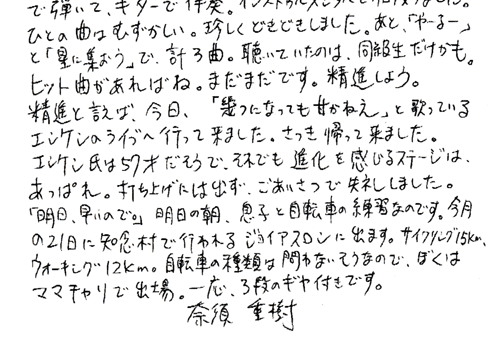 で弾いて、ギターで伴奏。インストゥルメンタル
ひとの曲はむずかしい。珍しくどきどきしました。あと、「やーるー」
と「星に集おう」で、計3曲。聴いていたのは、同級生だけかも。
ヒット曲があればね。まだまだです。精進しよう。
精進と言えば、今日、「幾つになっても甘かねえ」と歌っている
エンケンのライブへ行って来ました。さっき帰って来ました。
エンケン氏は57才だそうで、それでも進化を感じるステージは、
あっぱれ。打ち上げには出ず、ごあいさつで失礼しました。
「明日、早いので。」明日の朝、息子と自転車の練習なのです。今月
の21日に知念村で行われるジョイアスロンに出ます。サイクリング15km、
ウォーキング12km。自転車の種類は問わないそうなので、ぼくは
ママチャリで出場。一応、3段のギヤ付きです。
奈須 重樹